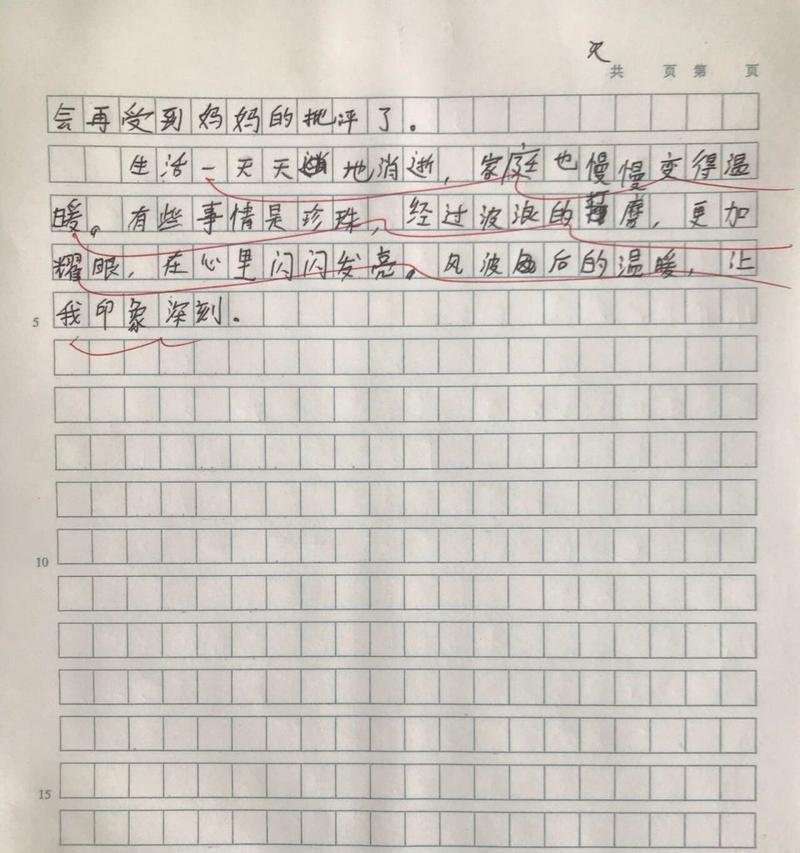 共 页 第 页
会再受到妈妈的批评了。
生活一天天地消逝，家庭也慢慢变得温
暖。有些事情是珍珠，经过波浪的磨，更加
耀眼，在心里闪闪发亮。风波后的温暖，让
5 我印象深刻。
10
15